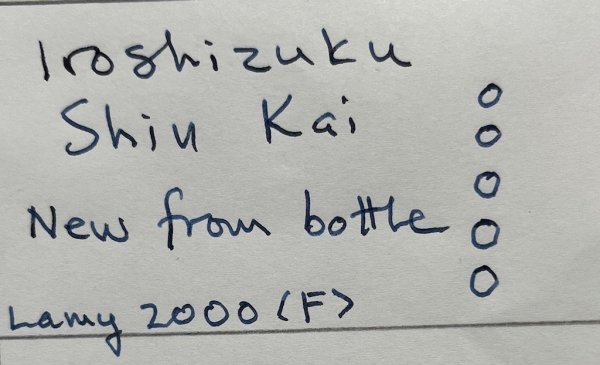 Iroshizuku
Shin Kai
New from bottle
Lamy 2000 (F)